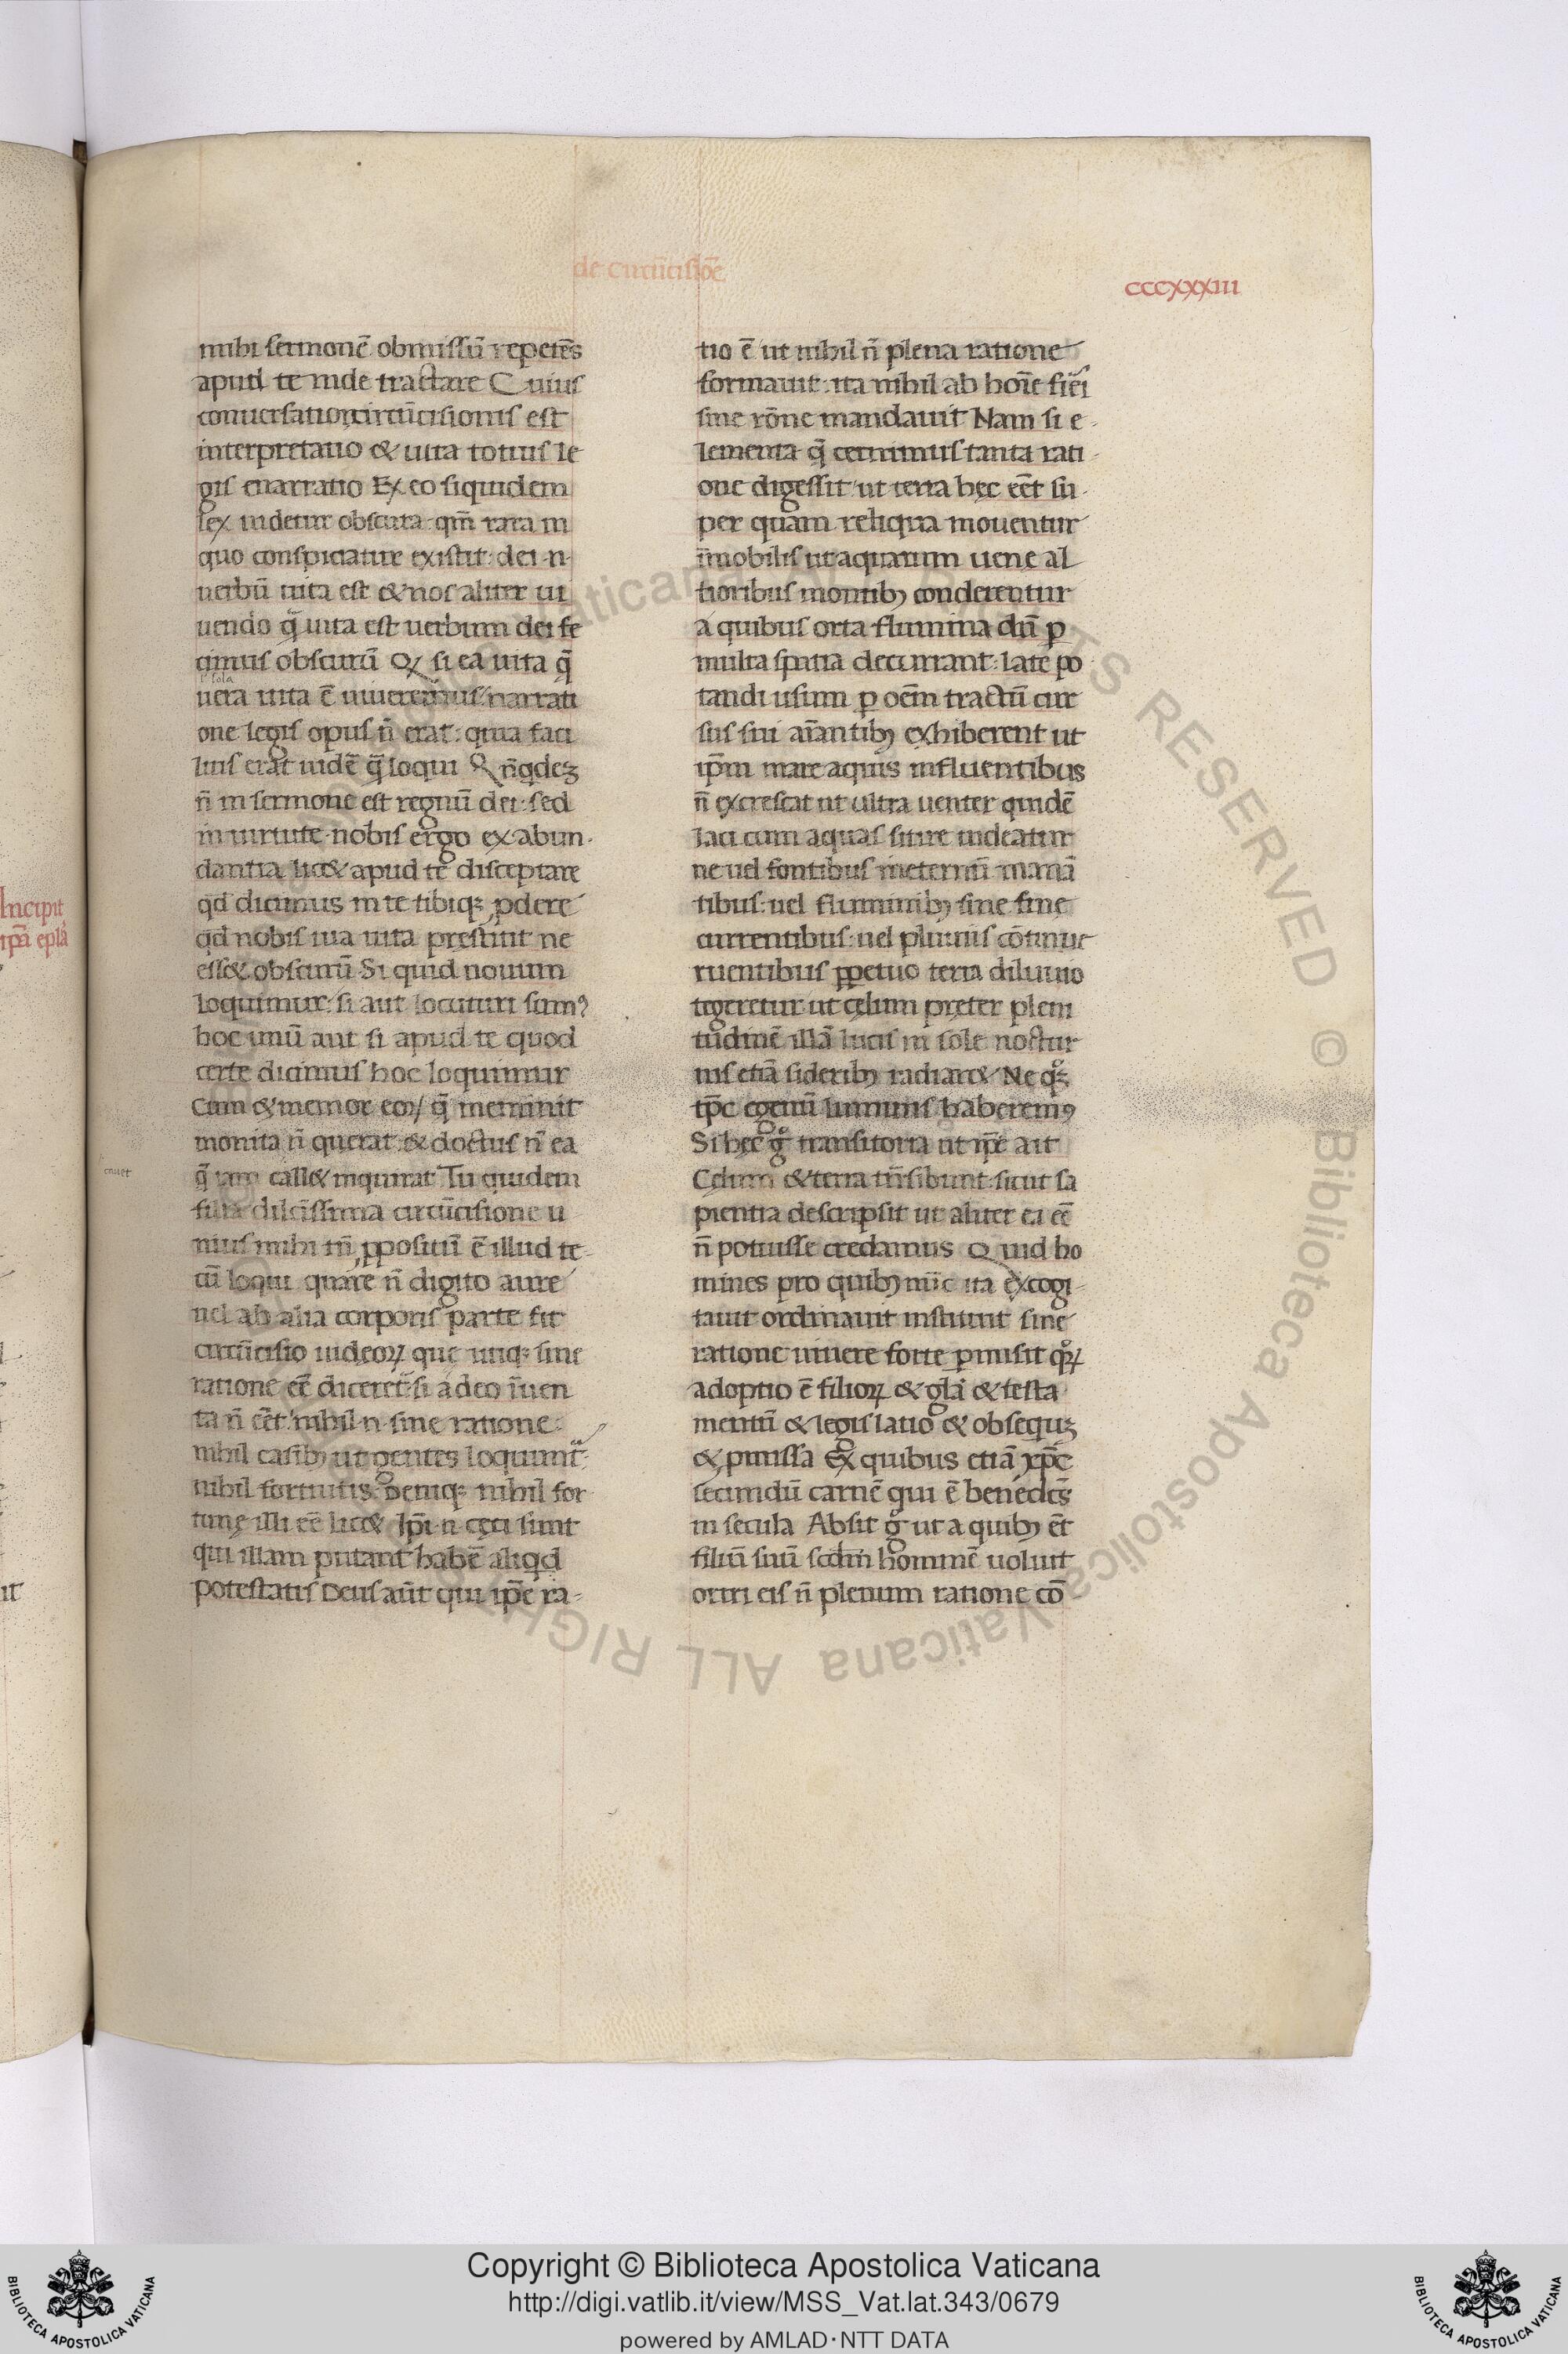 de circūcisiōe
cccxxxiii
mihi sermonē obmissū repetēs
apud te inde tractare Cuius
conuersatio circūcisionis est
interpretatio & uita totius le
gis enarratio Ex eo siquidem
lex uidetur obscura: qm̄ rara in
quo conspiciatur existit: dei ·n·
uerbū uita est & nos aliter ui
uendo q̄ uita est uerbum dei fe
cimus obscurū Q si ea uita q̄
l' sola
uera uita ē uiueremus narrati
one legis opus n̄ erat: quia faci
lius erat uidē q̄ loqui Q n̄ qdeȝ
n̄ in sermone est regnū dei: sed
in uirtute· nobis ergo ex abun·
dantia lic& apud te disceptare
qd̄ dicimus in te tibiqȝ ꝓdere
qd̄ nobis tua uita prestitit ne
ess& obscurū Si quid nouum
loquimur: si aut locuturi sumꝰ
hoc unū aut si apud te quod
certe dicimus hoc loquimur
Cum & memor eoꝝ q̄ meminit
monita n̄ querat: & doctus n̄ ea
q̄ iam call& inquirat Tu quidem
filia dilcīssima circūcisione u
nius mihi tn̄ ꝓpositū ē illud te-
cū loqui quare n̄ digito aure
uel ab alia corporis parte fit
circūcisio uideoꝝ que utiqȝ sine
ratione eē diceret̄ si a deo īuen
ta n̄ eēt· nihil ·n· sine ratione:
nihil casibȝ ut gentes loquunt̄:
nihil fortuitis: Deniqȝ nihil for
tunę illi eē lic& Ip̄i ·n· cęci sunt
qui illam putant habē aliqid
potestatis Deus aūt qui ip̄e ra-
tio ē ut nihil n̄ plena ratione
formauit: ita nihil ab hoīe fiēi
sine rōne mandauit Nam si e-
lementa q̄ cernimus tanta rati-
one digessit: ut terra hęc eēt su-
per quam reliqua mouentur
īmobilis ut aquarum uenę al
tioribus montibȝ conderentur
a quibus orta flumina dū ꝑ
multa spatia decurrant: late po
tandi usum ꝑ oēm tractū cur
sus sui aīantibȝ exhiberent ut
ip̄m mare aquis influentibus
n̄ excrescat ut ultra uenter quidē
laci cum aquas sitire uideatur
ne uel fontibus ineternū manā
tibus: uel fluminibȝ sine fine
currentibus: uel pluuiis cōtinue
ruentibus ꝑpetuo terra diluuio
tegeretur: ut cęlum pręter pleni
tudinē illā lucis in sole noctur
nis etiā sideribȝ radiar& Ne qȝ
tp̄c egenū luminis haberemꝰ
Si hęc g° transitoria ut ip̄e ait
Cęlum & terra trn̄sibunt: sicut sa
pientia descripsit ut aliter ea eē
n̄ potuisse credamus Quid ho
mines pro quibȝ mīc ita excogi-
tauit ordinauit instituit sine
ratione uiuere forte ꝑmisit qꝝ
adoptio ē filioꝝ & glā & testa
mentū & legis latio & obsequȝ
& ꝓmissa Ex quibus etiā xp̄c
secundū carnē qui ē benedcs̄
in secula Absit g° ut a quibȝ ēt
filiū suū scdm̄ hominē uoluit
oriri eis n̄ plenum ratione cō
ncipit
ip̄a eplā
Copyright © Biblioteca Apostolica Vaticana
http://digi.vatlib.it/view/MSS_Vat.lat.343/0679
powered by AMLAD·NTT DATA
BIBLIOTECA APOSTOLICA VATICANA
BIBLIOTECA APOSTOLICA VATICANA
© Biblioteca Apostolica Vaticana ALL RIGHTS RESERVED